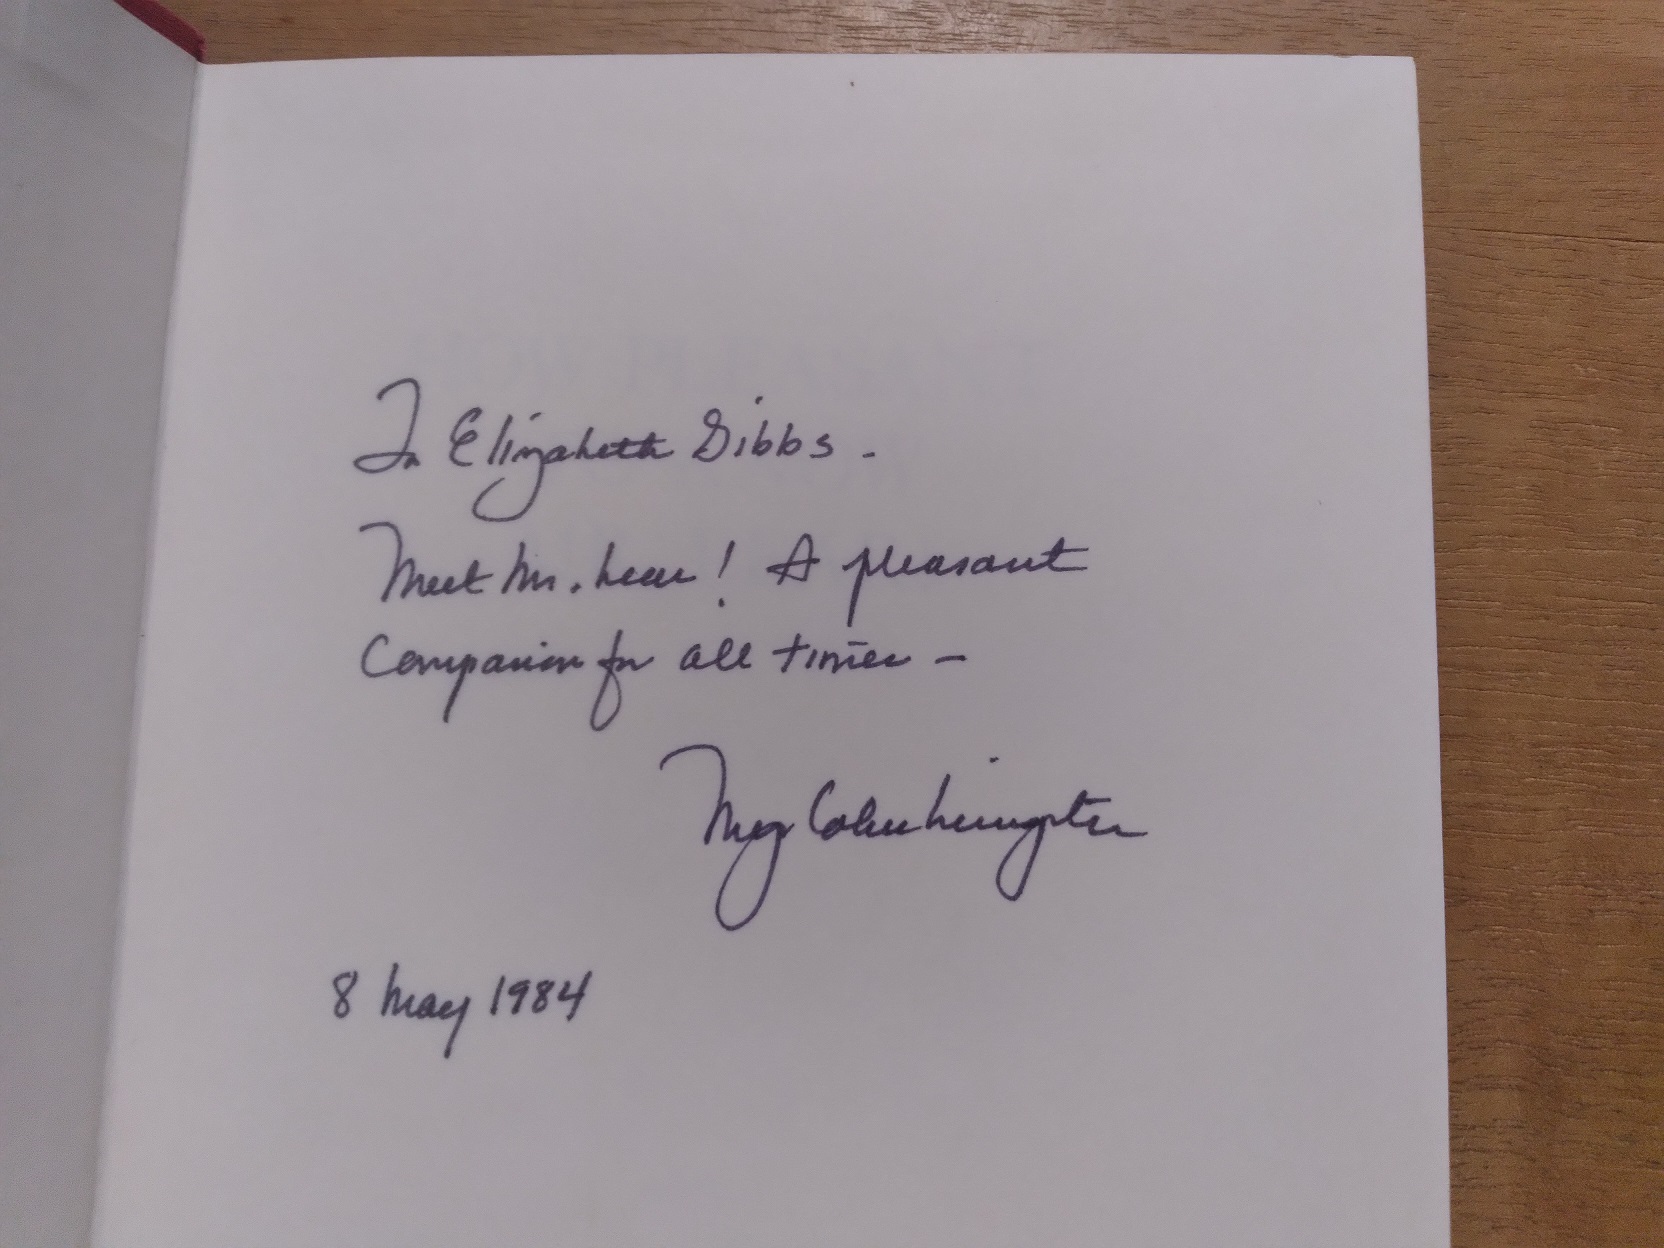 To Elizabeth Gibbs -
Meet Mr. Lear! A pleasant
Companion for all times -
Meg
8 May 1984